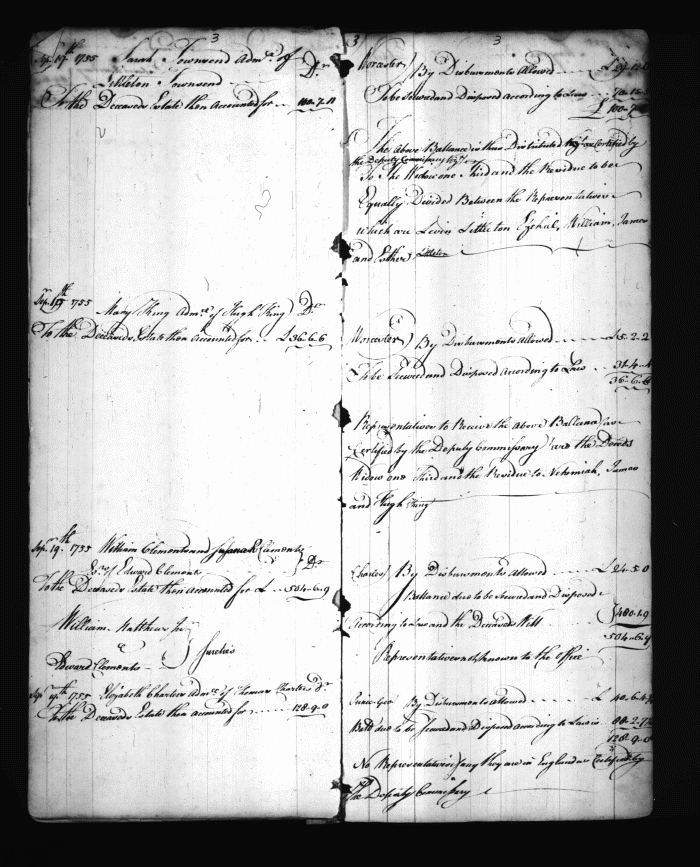 3
Sep. 17th 1755 Sarah Townsend Admx. of Dr.
Littleton Townsend
To the Deceaseds Estate then accounted for ... 100-7-11
Sep. 17th 1755 Mary King Admx. of Hugh King Dr.
To the Deceaseds Estate then accounted for ... £36-6-6
Sep. 19th 1755 William Clements and Clements
Exrs. of Edward Clements Dr.
To the Deceaseds Estate then accounted for £ ... 504-6-9
William Matthews Jr.
Sureties
Edward Clements
Sep. 19th 1755 Elizabeth Charter Admx. of Thomas Charter Dr.
To the Deceaseds Estate then accounted for ... 128-9-0
3
3
Worcester By Disbursments Allowed
To be Secured and Disposed According to Law
£ 100-7-
The above Ballance is thus Distributed as Certified by
the Deputy Commissary
To The Widow one Third and the Residue to be
Equally Divided Between the Representatives
which are Levin Littleton Ezekiel, William, James
and Esther Littleton
Worcester By Disbursments allowed ... £5-2-2
To be Secured and Disposed According to Law ... 31-4-4
36-6-6
Representatives to Receive the above Ballance are
Certified by the Deputy Commissary Vizt the Deceds
Widow one Third and the Residue to Nehemiah, James
and Hugh King
Charles By Disbursments allowed ... £24-5-0
Ballance due to be Secured and Disposed
According to Law and the Deceaseds Will 480-1-9
504-6-9
Representatives unknown to the Office
Prince Geo By Disbursments allowed ... £ 40-6-4
Balle due to be Secured and Disposed According to Law is 88-2-7
128-9-0
No Representatives if any they are in England as Certified by
The Deputy Commissary